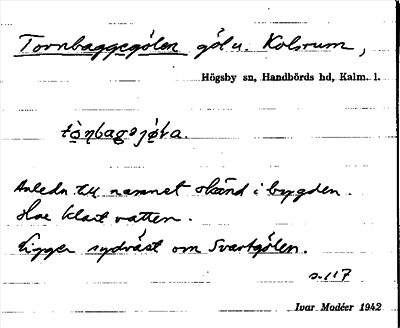 Tornbaggegölen göl u. Kolsrum,
Högsby sn, Handbörds hd, Kalm. l.
Anledn. till namnet okänd i bygden.
Har klart vatten.
Ligger sydväst om Svartgölen.
s. 117
Ivar Modéer 1942